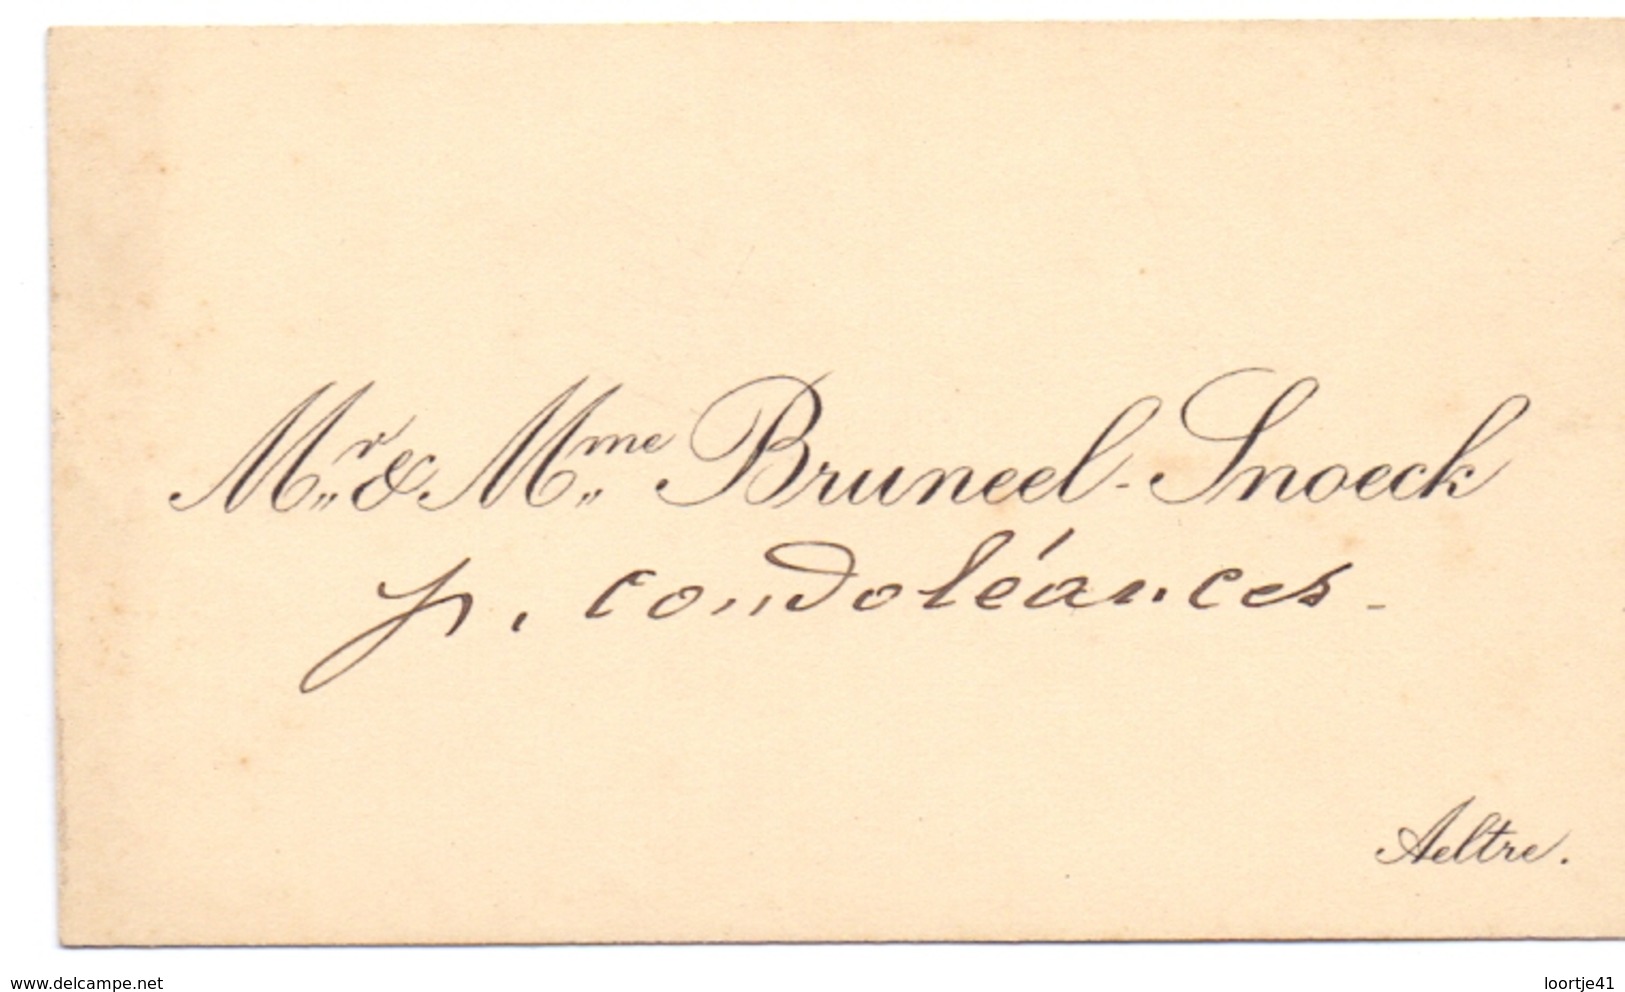 Mr & Mme Bruneel-Snoeck
p. condoléances.
Aeltre.
www.delcampe.net
loortje41